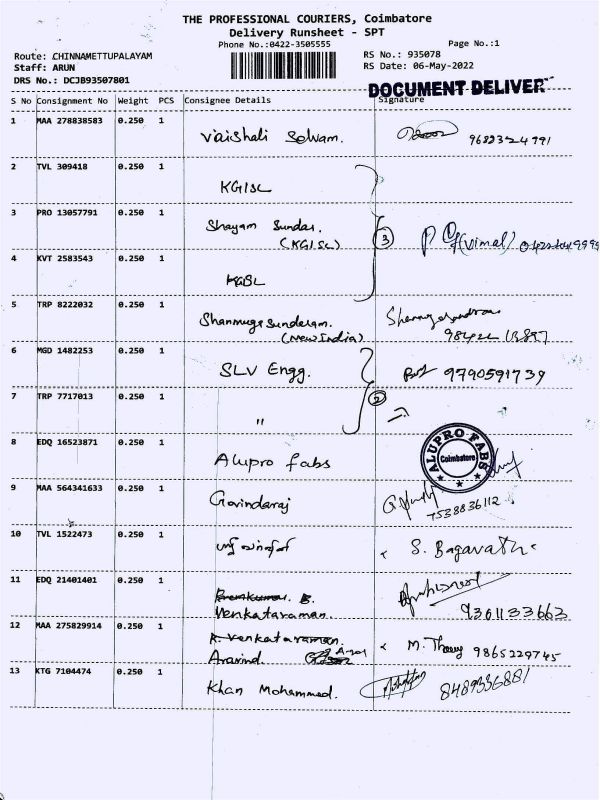 THE PROFESSIONAL COURIERS, Coimbatore
Delivery Runsheet - SPT
Phone No.:0422-3505555
Page No.:1
Route: CHINNAMETTUPALAYAM
RS No.: 935078
Staff: ARUN
RS Date: 06-May-2022
DRS No.: DCJB93507801
DOCUMENT DELIVER
S No Consignment No Weight PCS Consignee Details Signature
1 MAA 278838583 0.250 1 Vaishali Selvam.
2 TVL 309418 0.250 1 KGISL
3 PRO 13057791 0.250 1 Shayam Sundar.
(KGISL) 3 (Vimal)
4 KVT 2583543 0.250 1 KGISL
5 TRP 8222032 0.250 1 Shanmuga Sundaram.
(New India)
6 MGD 1482253 0.250 1 SLV Engg. 9790591739
7 TRP 7717013 0.250 1 " 2
8 EDQ 16523871 0.250 1 Alupro fabs ALUPRO FABS Coimbatore
9 MAA 564341633 0.250 1 Govindaraj 7538836112
10 TVL 1522473 0.250 1 S. Bagavath
11 EDQ 21401401 0.250 1 B.
Venkataraman. 9361133663
12 MAA 275829914 0.250 1 R. Venkataraman.
Aravind. M. 9865229745
13 KTG 7104474 0.250 1 Khan Mohammed. 8489336881